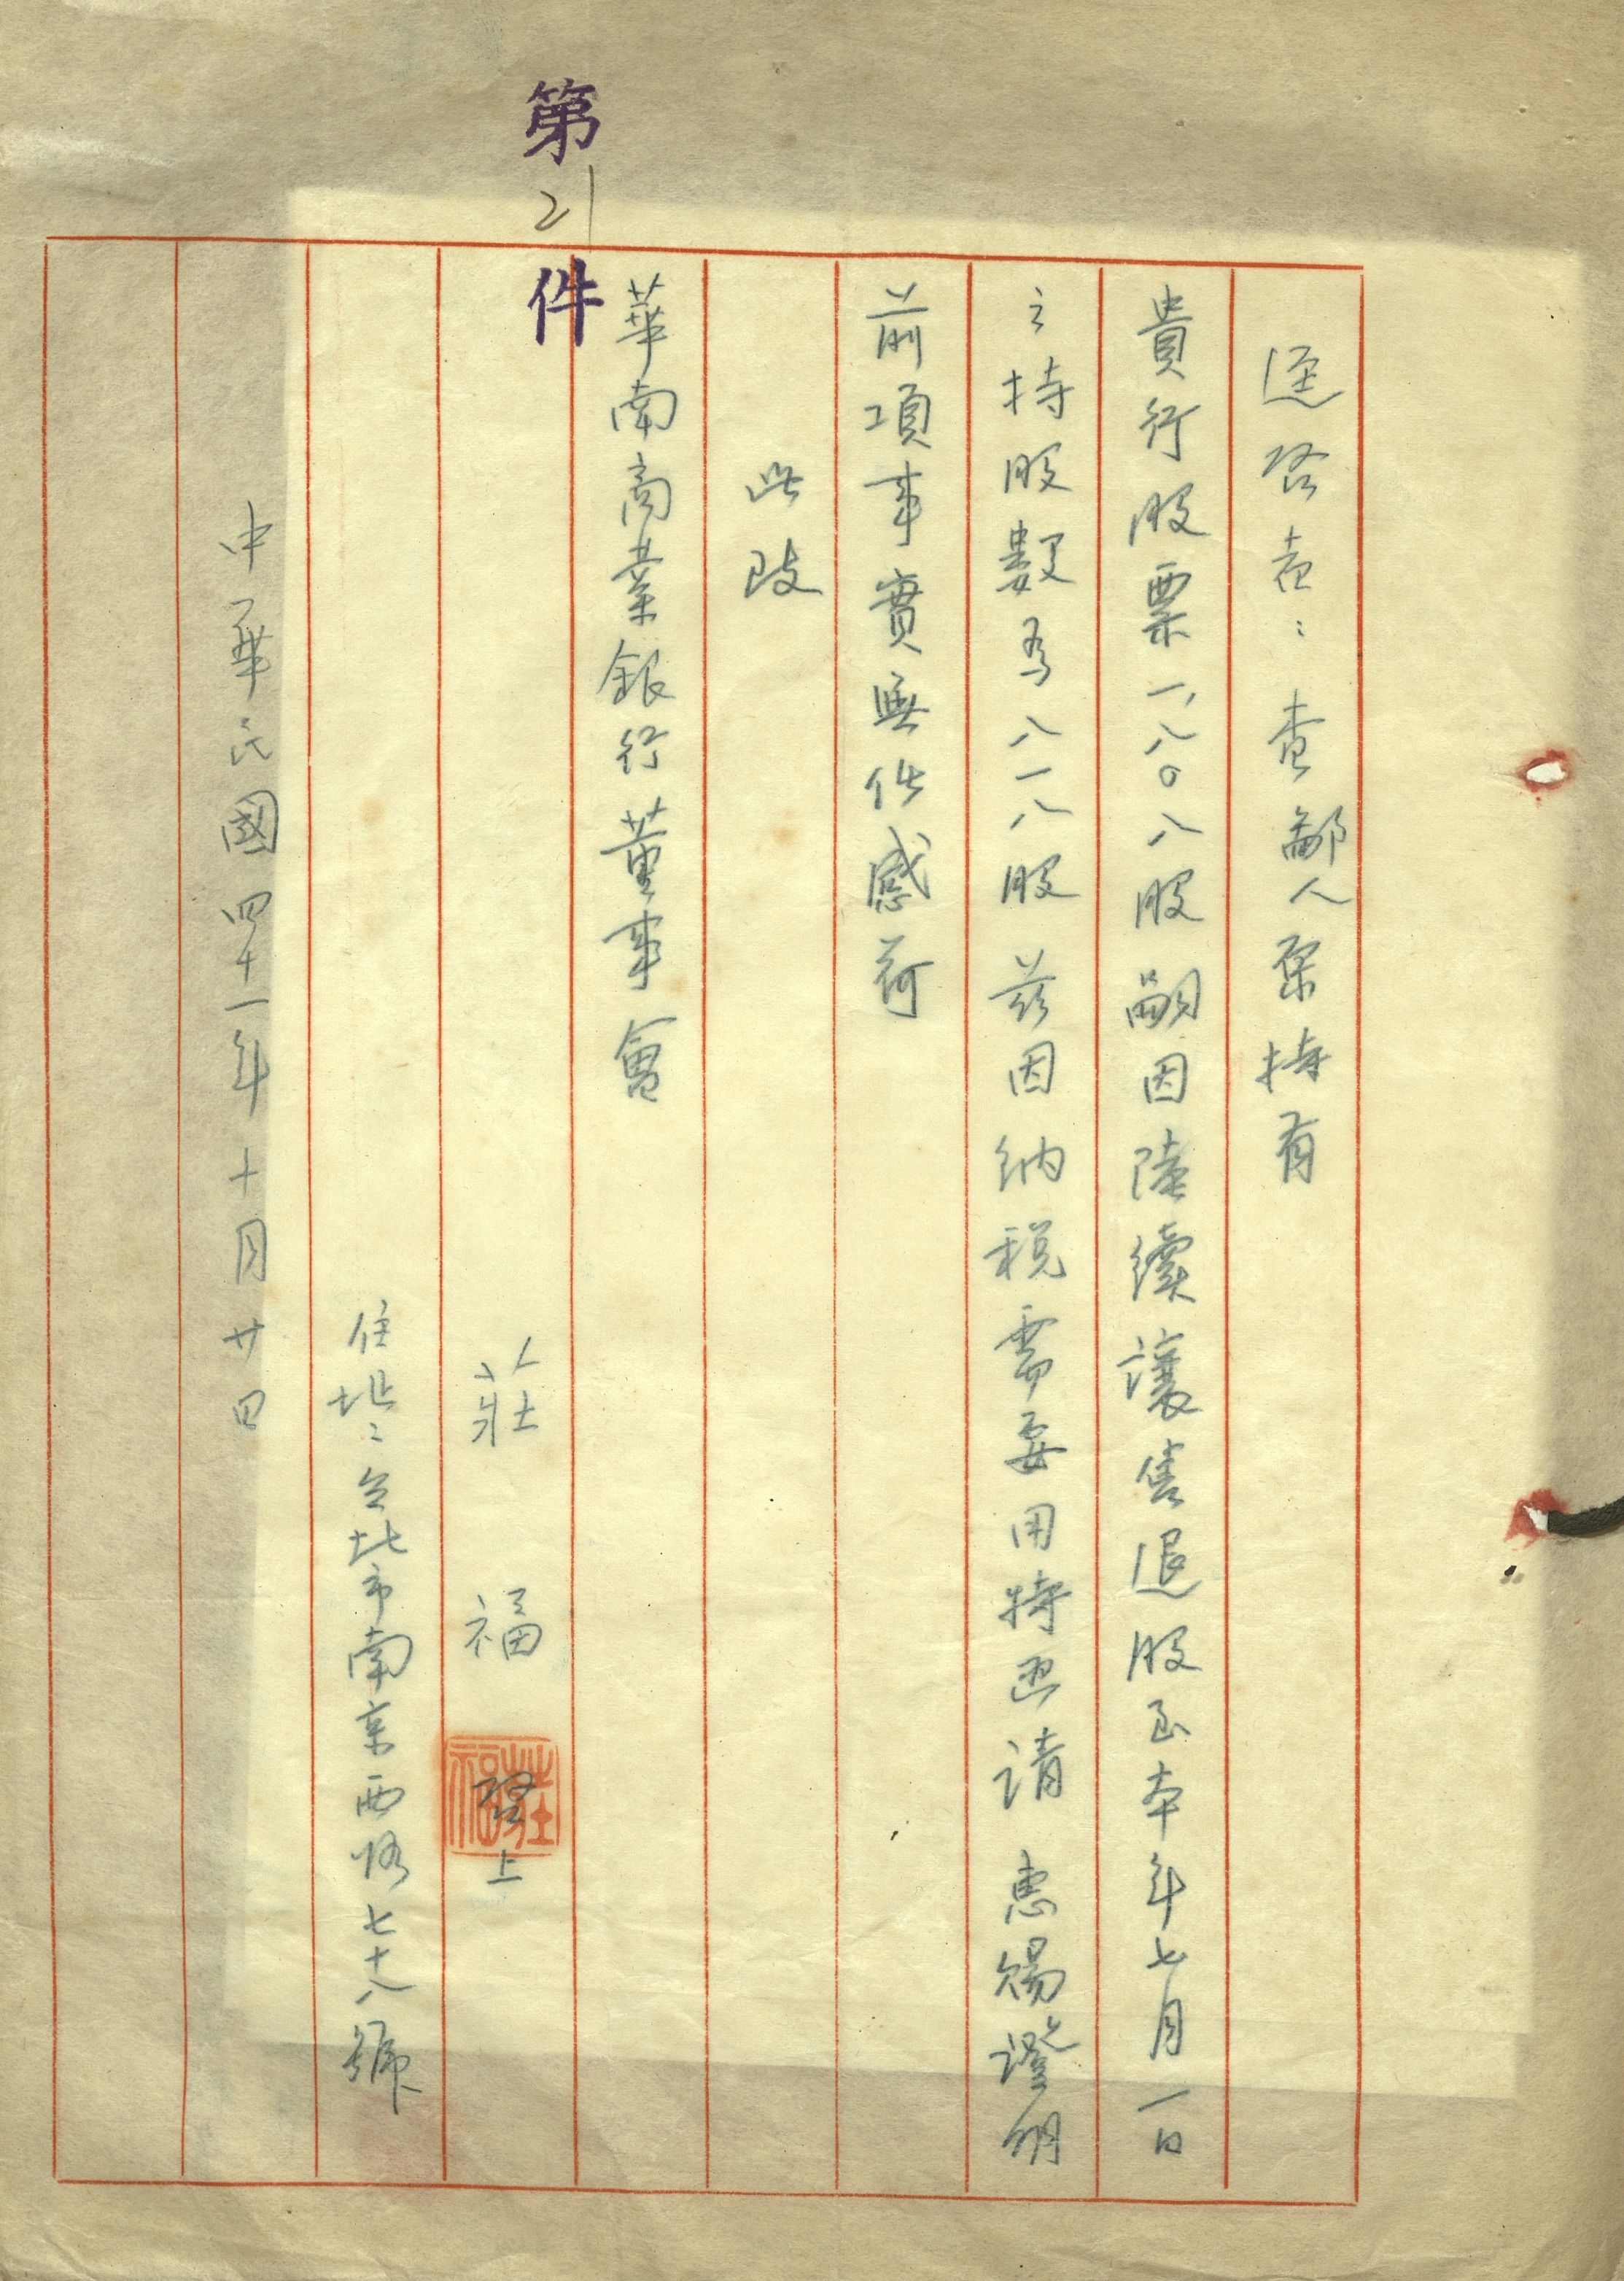 第21件
逕啓者：查鄙人原持有
貴行股票一、八〇八股嗣因陸續讓售退股至本年七月一日
之持股數為八一八股茲因納稅需要用特函請惠賜證明
前項事實無任感荷
此致
華南商業銀行董事會
莊福啓上
莊福
住址：台北市南京西路七十八號
中華民國四十一年十月廿日